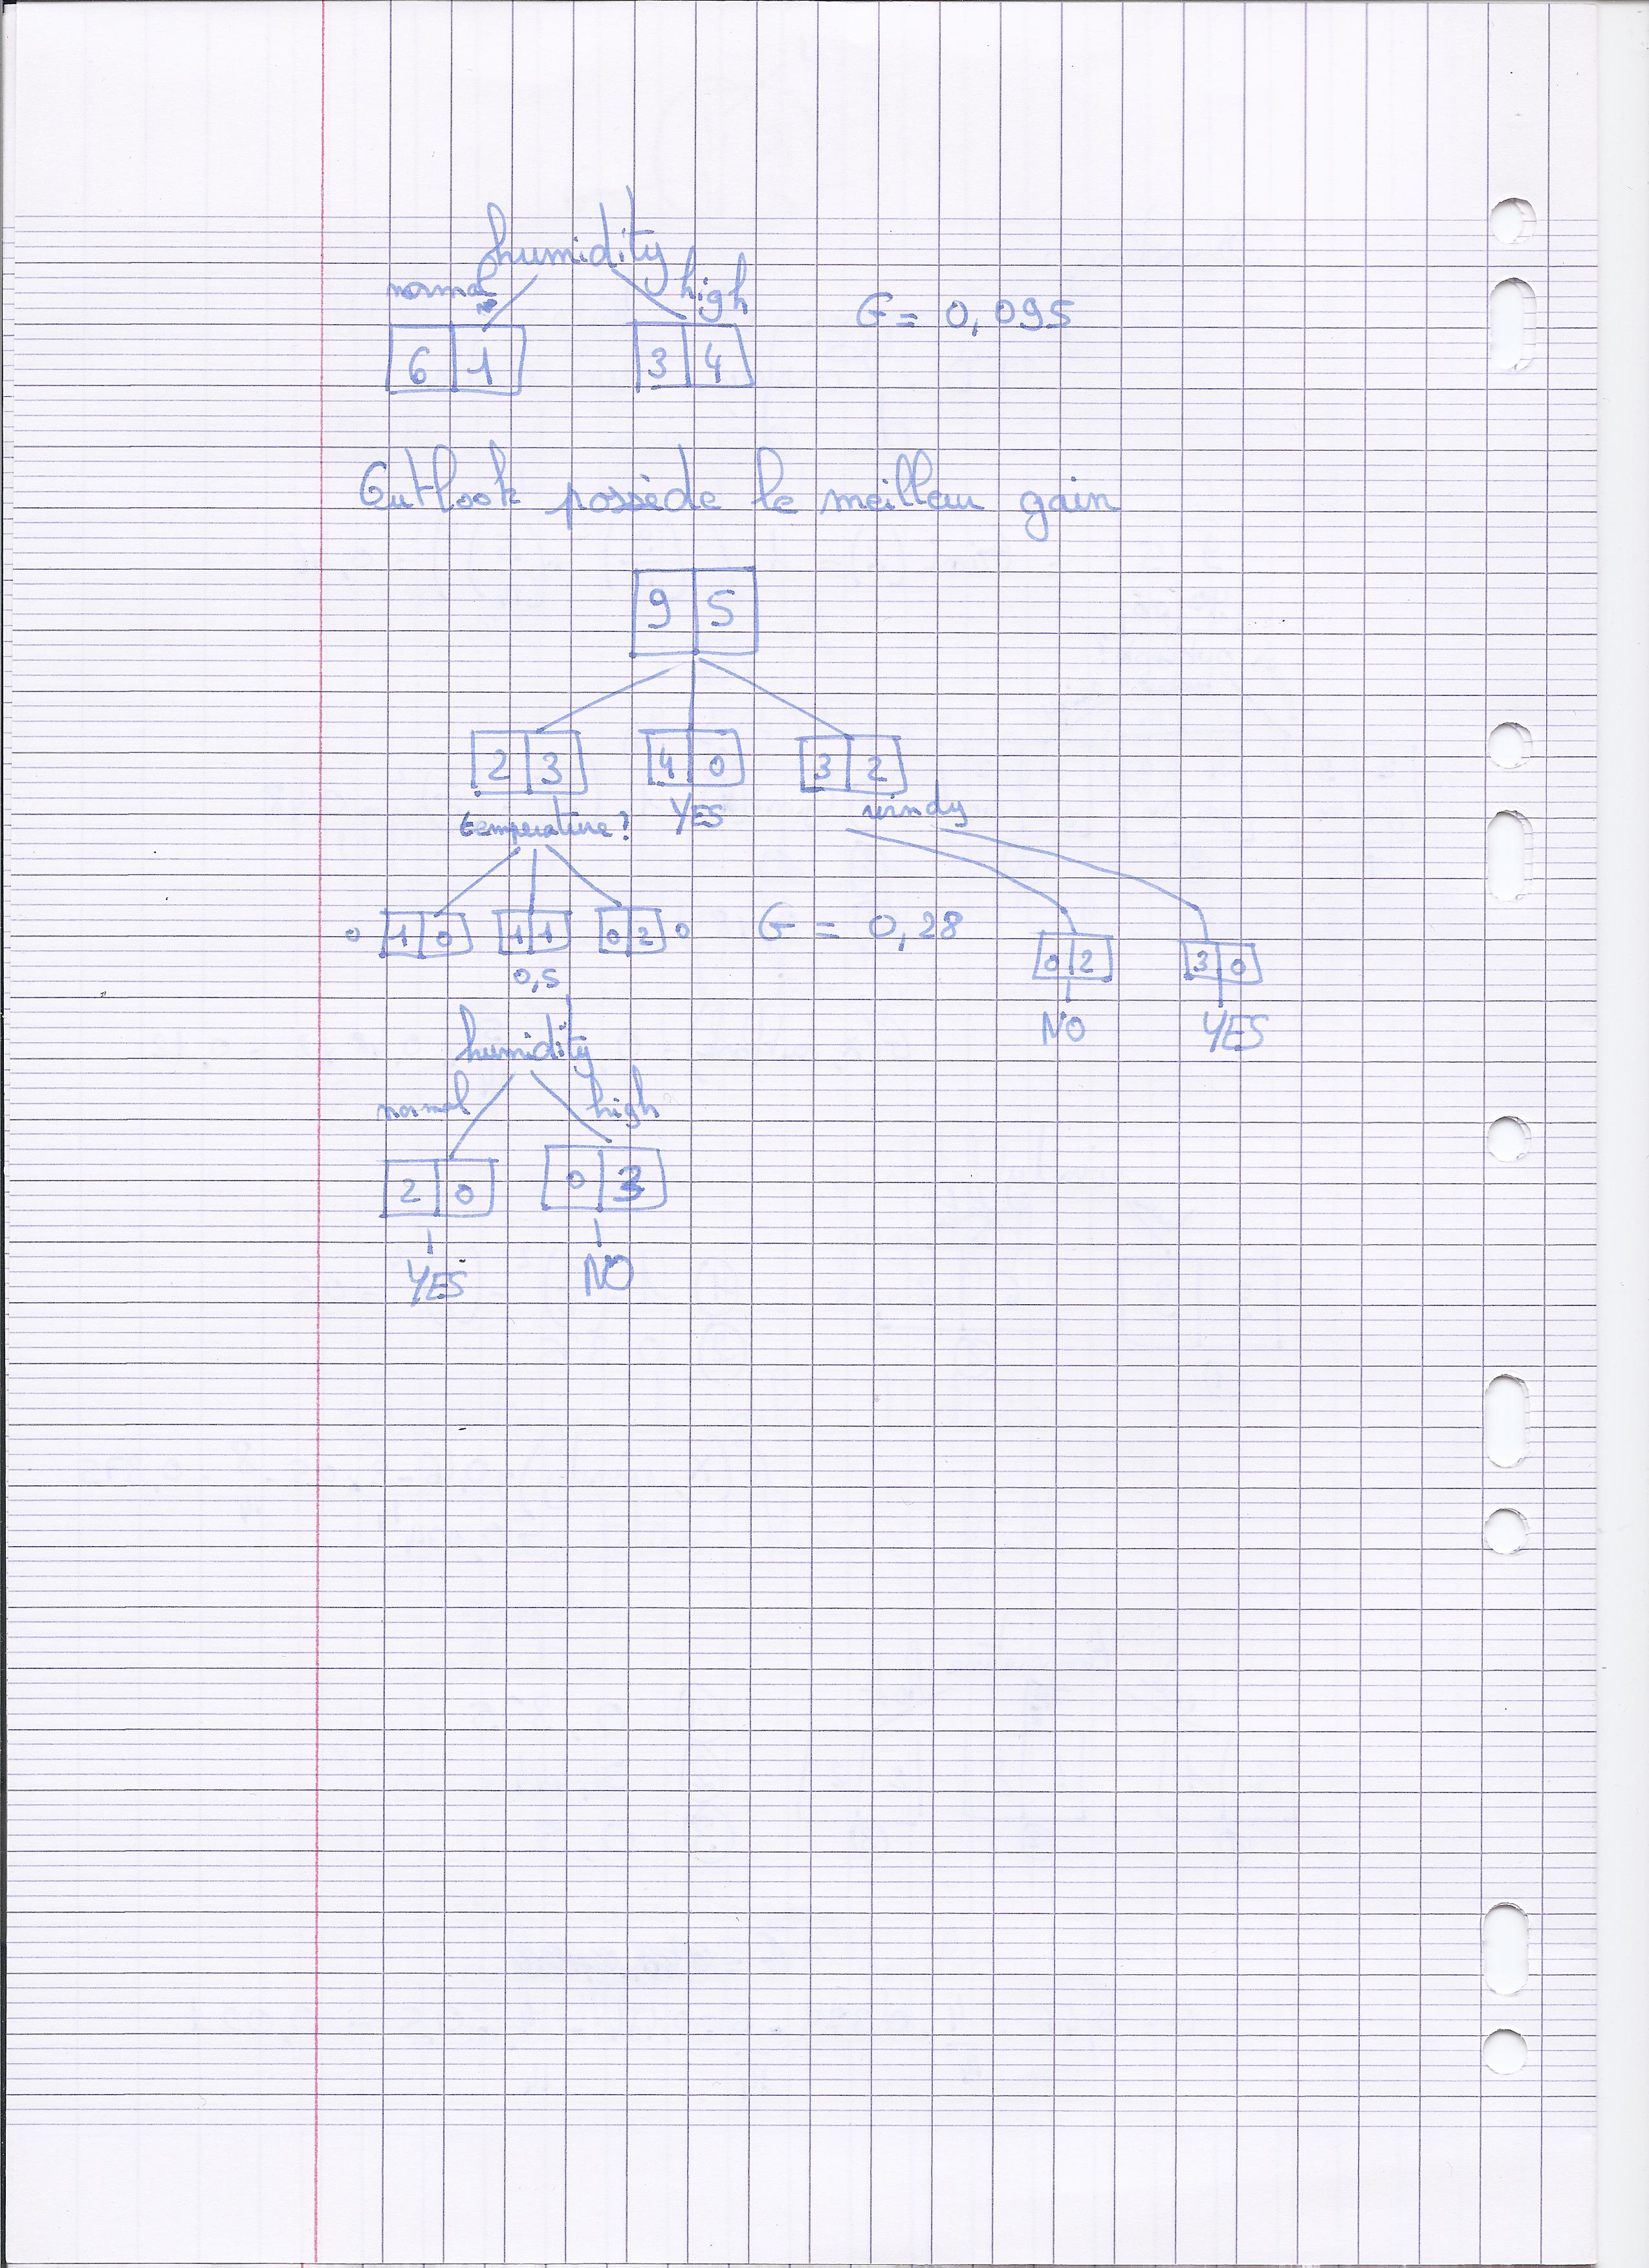 humidity
normal high
6 1 3 4 G = 0,095
Outlook possède le meilleur gain
9 5
2 3 4 0 3 2
temperature? YES windy
0 1 0 1 1 0 2 0 G = 0,28 0 2 3 0
0,5
humidity NO YES
normal high
2 0 0 3
YES NO